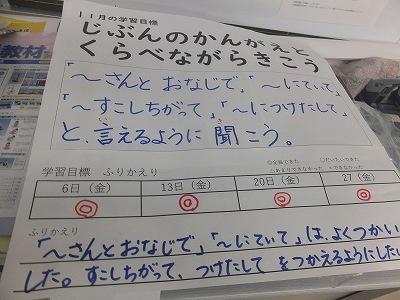 教材
11月の学習目標
じぶんのかんがえと
くらべながらきこう
「～さんと おなじで」「～にていて」
「～すこしちがって」「～につけたして」
と、言えるように 聞こう。
い き
学習目標 ふりかえり
◎全員できた ○だいたいできた
△あまりできなかった ×できなかった
6日（金） 13日（金） 20日（金） 27（金）
◎ ◎ ◎ ◎
ふりかえり
「～さんとおなじで」「～にていて」は、よくつかい
した。すこしちがって、つけたして をつかえるようにしたい